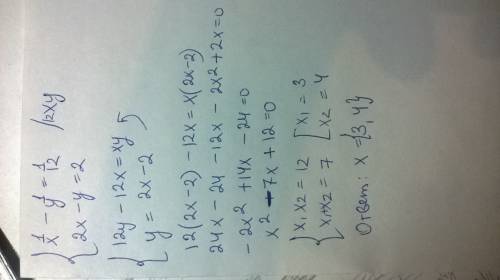 { 1/x - 1/y = 1/12 /12xy
{ 2x - y = 2
{ 12y - 12x = xy
{ y = 2x - 2
12(2x-2) - 12x = x(2x-2)
24x - 24 - 12x - 2x² + 2x = 0
- 2x² + 14x - 24 = 0
x² - 7x + 12 = 0
{ x₁x₂ = 12 [ x₁ = 3
{ x₁+x₂ = 7 [ x₂ = 4
Ответ: x = {3, 4}